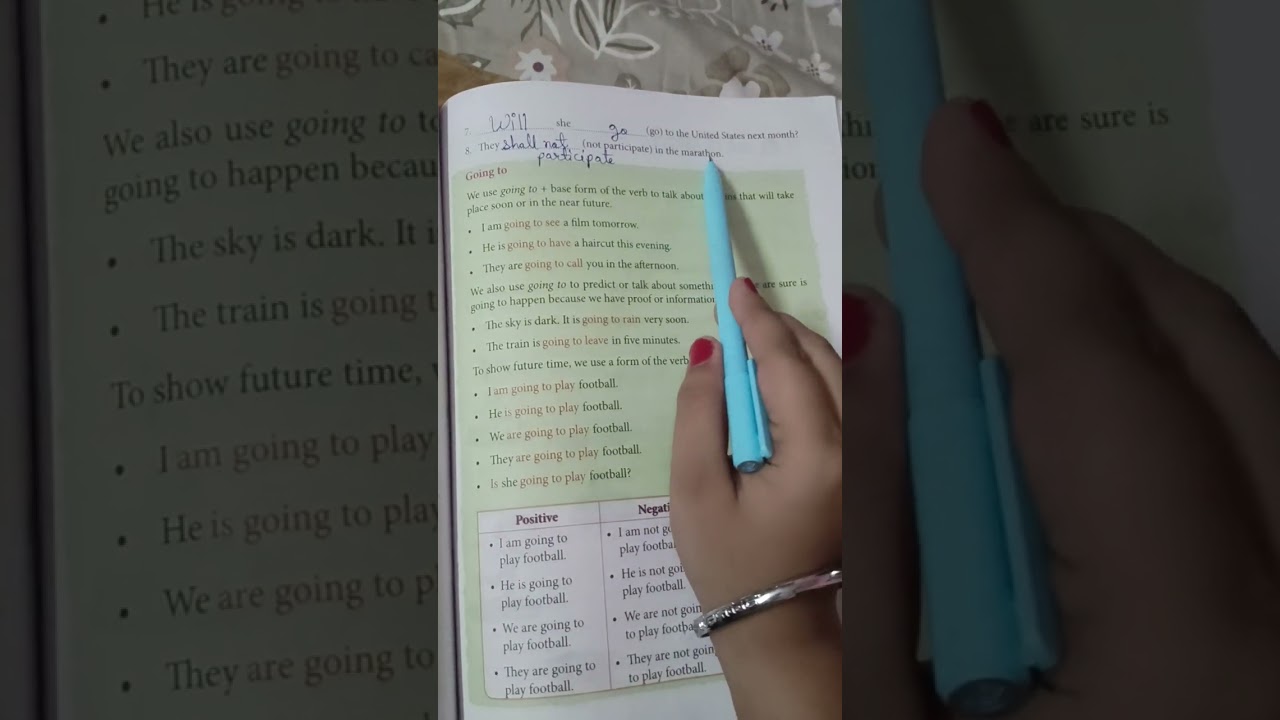 7. Will she go (go) to the United States next month?
8. They shall not (not participate) in the marathon.
participate
Going to
We use going to + base form of the verb to talk about that will take
place soon or in the near future.
• I am going to see a film tomorrow.
• He is going to have a haircut this evening.
• They are going to call you in the afternoon.
We also use going to to predict or talk about are sure is
going to happen because we have proof or information
• The sky is dark. It is going to rain very soon.
• The train is going to leave in five minutes.
To show future time, we use a form of the verb
• I am going to play football.
• He is going to play football.
• We are going to play football.
• They are going to play football.
• Is she going to play football?
Positive
• I am going to
play football.
• He is going to
play football.
• We are going to
play football.
• They are going to
play football.
• I am not
play
• He is not
play football.
• We are not
to play
• They are not
to play football.